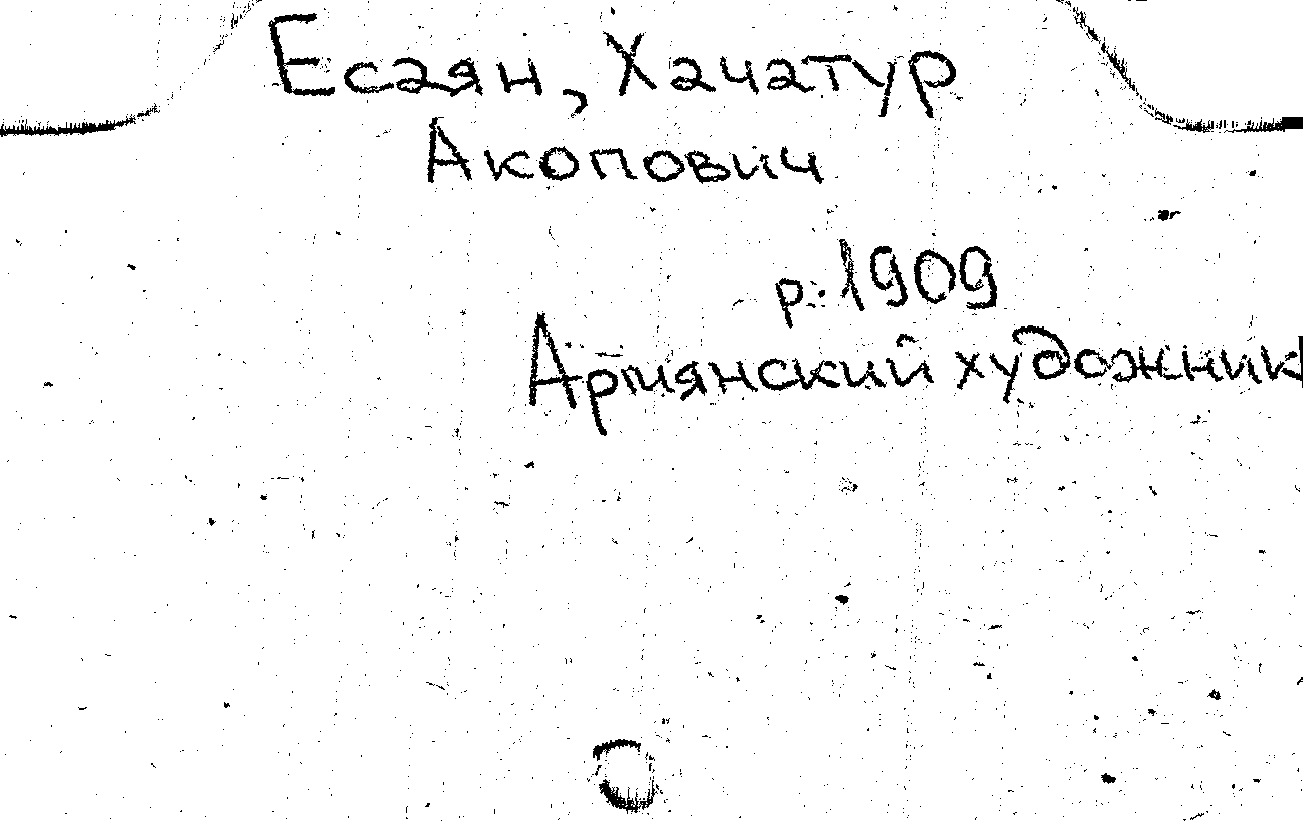 Есаян, Хачатур
Акопович
р. 1909
Армянский художник